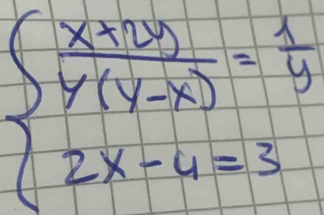 x+2y / y(y-x) = 1/y
2x-4=3